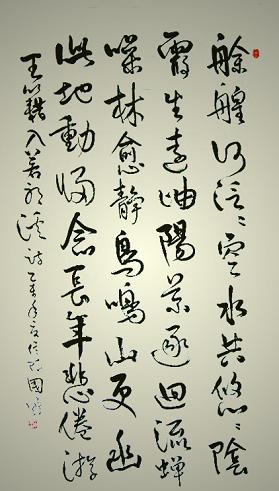 艅艎何泛〻空水共悠〻陰
霞生遠岫陽景逐迴流蟬
噪林愈靜鳥鳴山更幽
此地動歸念長年悲倦游
王籍入若耶溪詩乙未年夏國